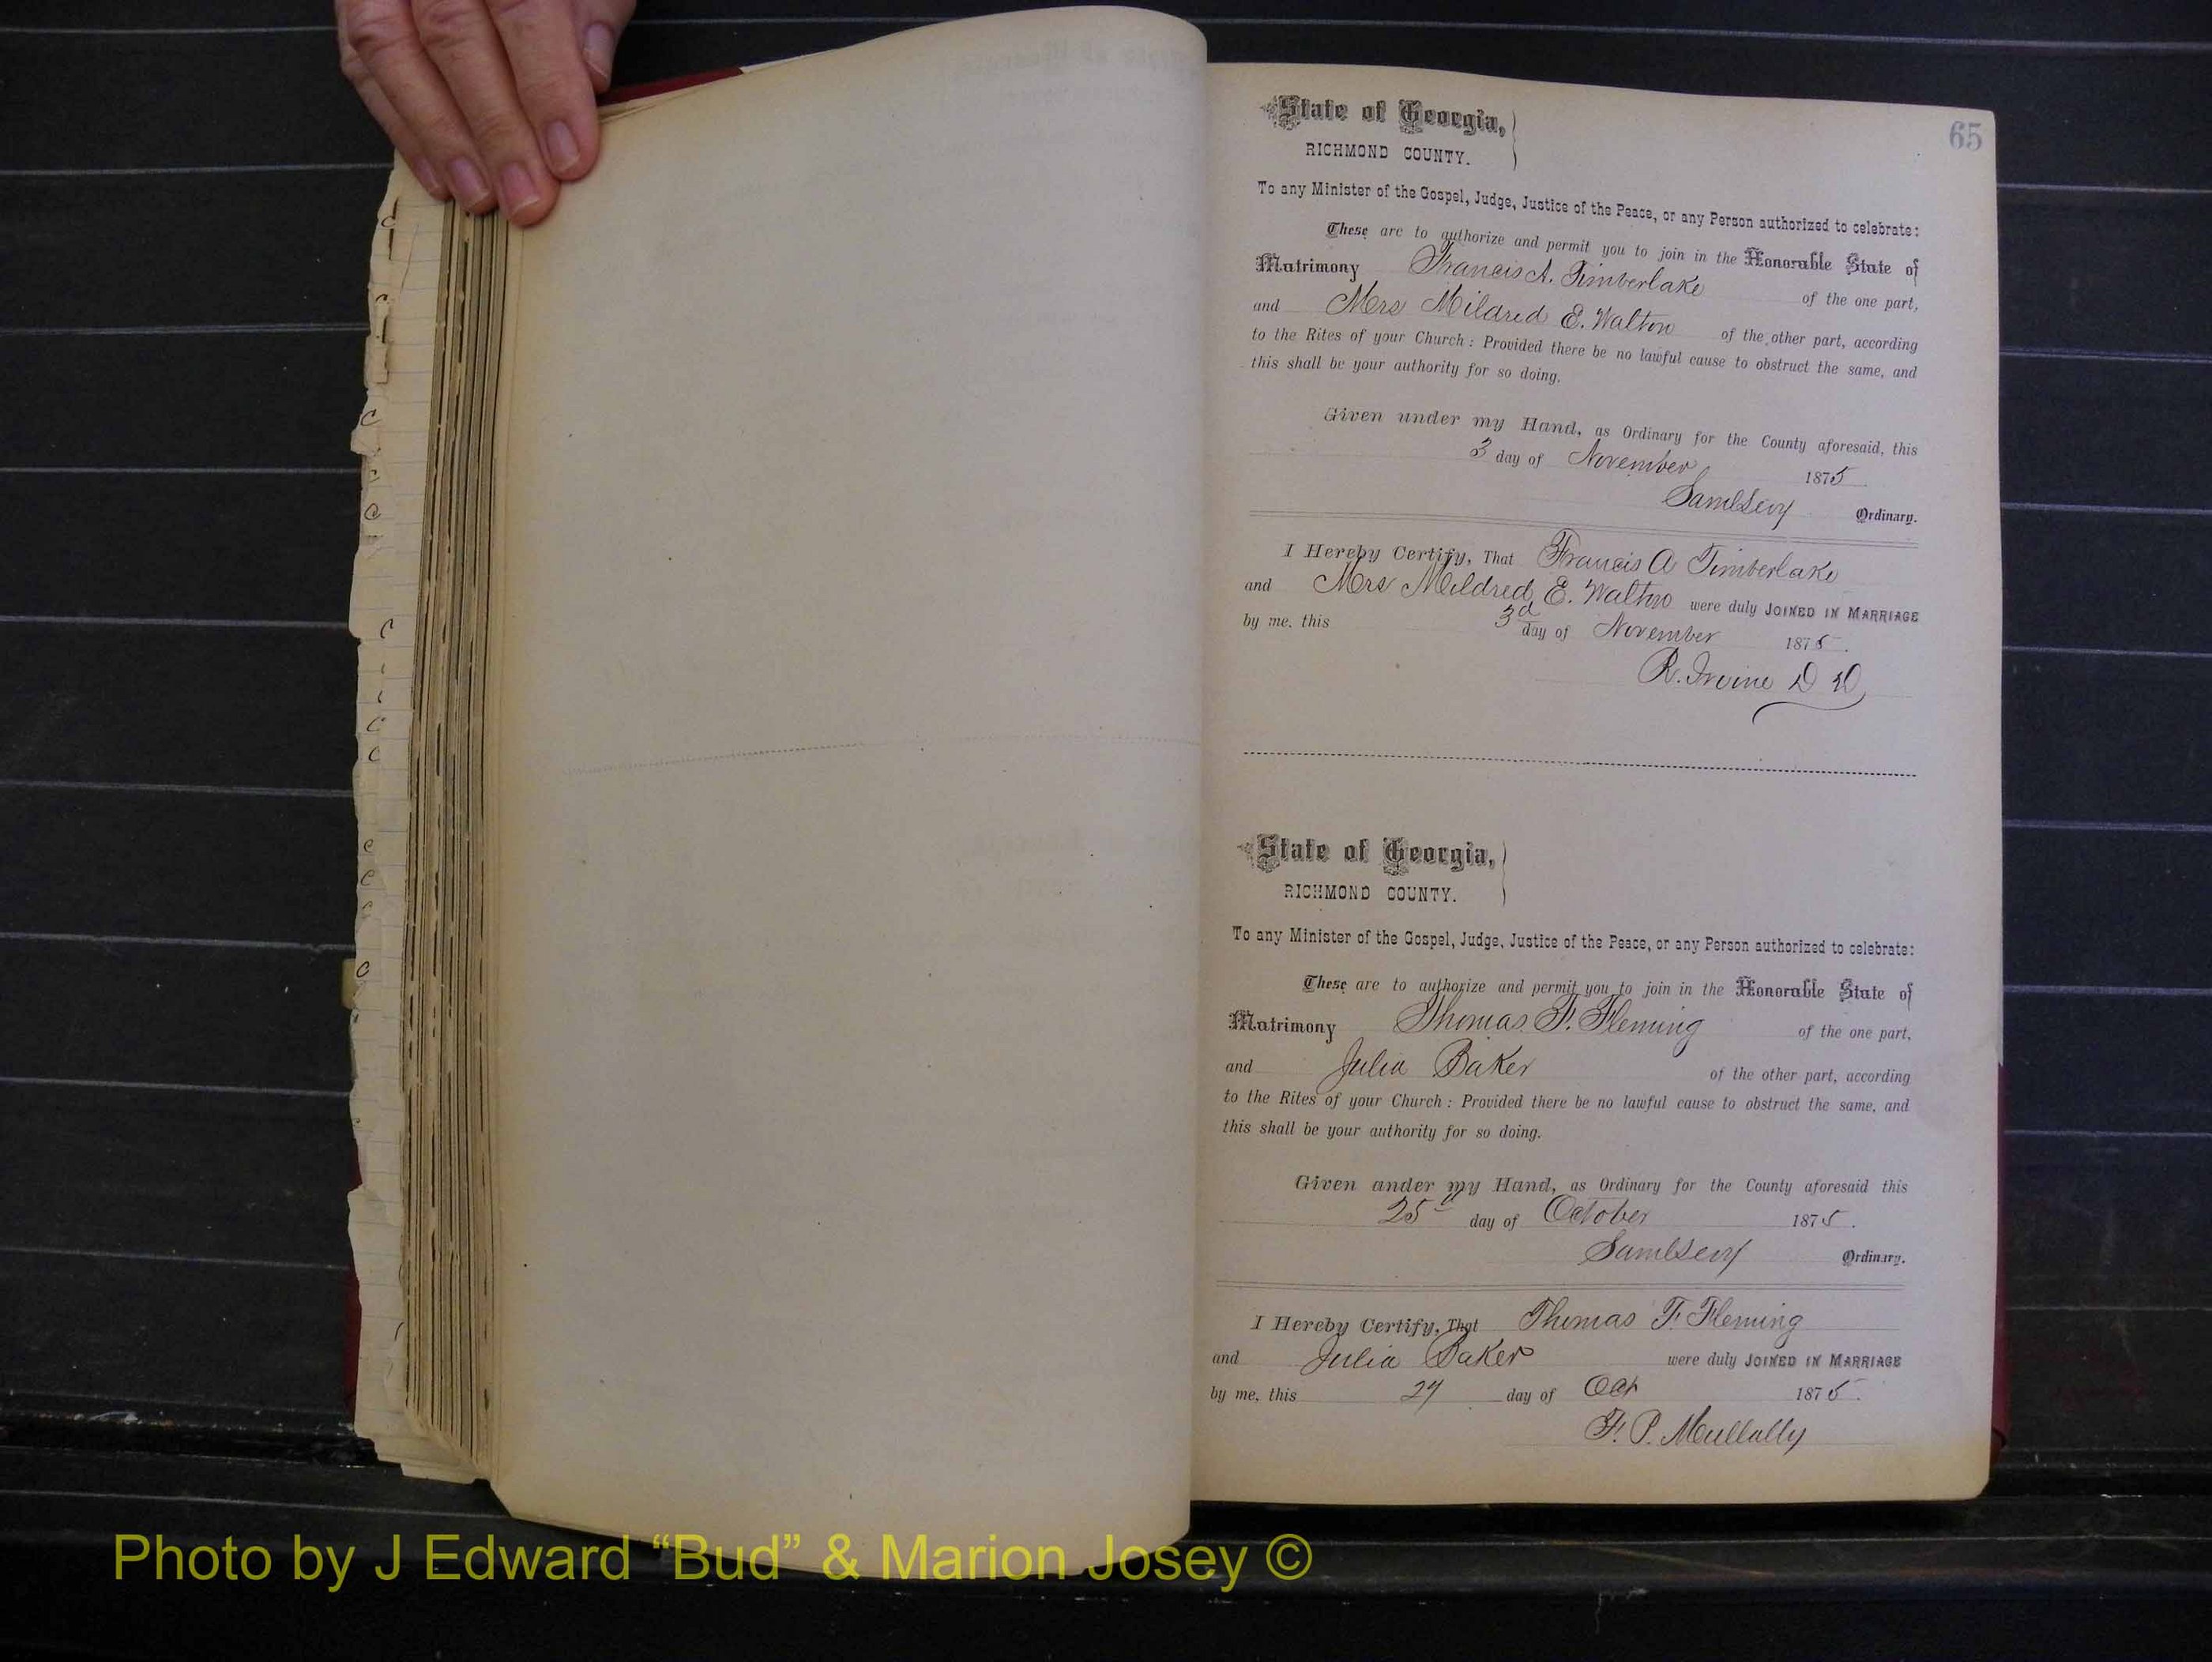 65
State of Georgia,
RICHMOND COUNTY.
To any Minister of the Gospel, Judge, Justice of the Peace, or any Person authorized to celebrate:
These are to authorize and permit you to join in the Honorable State of
Matrimony Francis A. Timberlake of the one part,
and Mrs Mildred E. Walton of the other part, according
to the Rites of your Church: Provided there be no lawful cause to obstruct the same, and
this shall be your authority for so doing.
Given under my Hand, as Ordinary for the County aforesaid, this
3 day of November 1875
Saml Levy Ordinary.
I Hereby Certify, That Francis A Timberlake
and Mrs Mildred E. Walton were duly JOINED IN MARRIAGE
by me, this 3d day of November 1875.
R. Irvine D D
State of Georgia,
RICHMOND COUNTY.
To any Minister of the Gospel, Judge, Justice of the Peace, or any Person authorized to celebrate:
These are to authorize and permit you to join in the Honorable State of
Matrimony Thomas F. Fleming of the one part,
and Julia Baker of the other part, according
to the Rites of your Church: Provided there be no lawful cause to obstruct the same, and
this shall be your authority for so doing.
Given under my Hand, as Ordinary for the County aforesaid this
25th day of October 1875.
Saml Levy Ordinary.
I Hereby Certify, That Thomas F. Fleming
and Julia Baker were duly JOINED IN MARRIAGE
by me, this 27 day of Oct 1875.
F. P. Mullally
Photo by J Edward “Bud” & Marion Josey ©